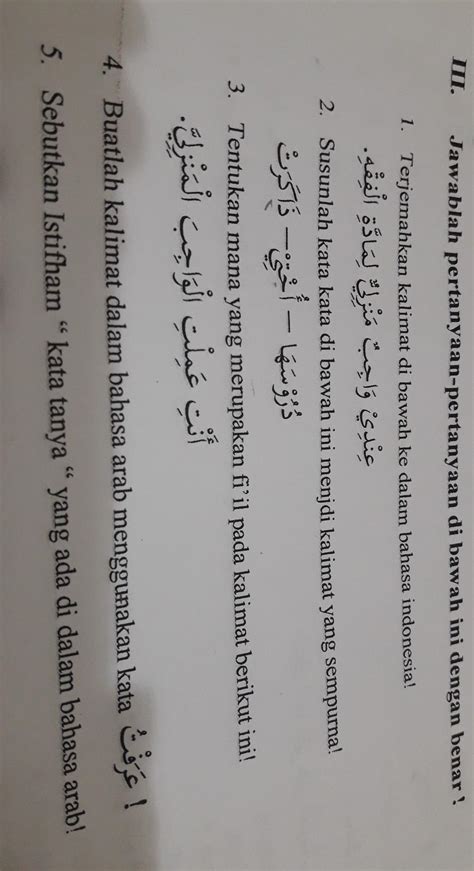 III. Jawablah pertanyaan-pertanyaan di bawah ini dengan benar !
1. Terjemahkan kalimat di bawah ke dalam bahasa indonesia!
عِنْدِيْ وَاجِبٌ مَنْزِلِيٌّ لِمَادَّةِ الْفِقْهِ.
2. Susunlah kata kata di bawah ini menjdi kalimat yang sempurna!
دُرُوْسَهَا – أُخْتِيْ – ذَاكَرَتْ
3. Tentukan mana yang merupakan fi'il pada kalimat berikut ini!
أَنْتِ عَمِلْتِ الْوَاجِبَ الْمَنْزِلِيَّ.
4. Buatlah kalimat dalam bahasa arab menggunakan kata عَرَفْتُ !
5. Sebutkan Istifham “ kata tanya “ yang ada di dalam bahasa arab!